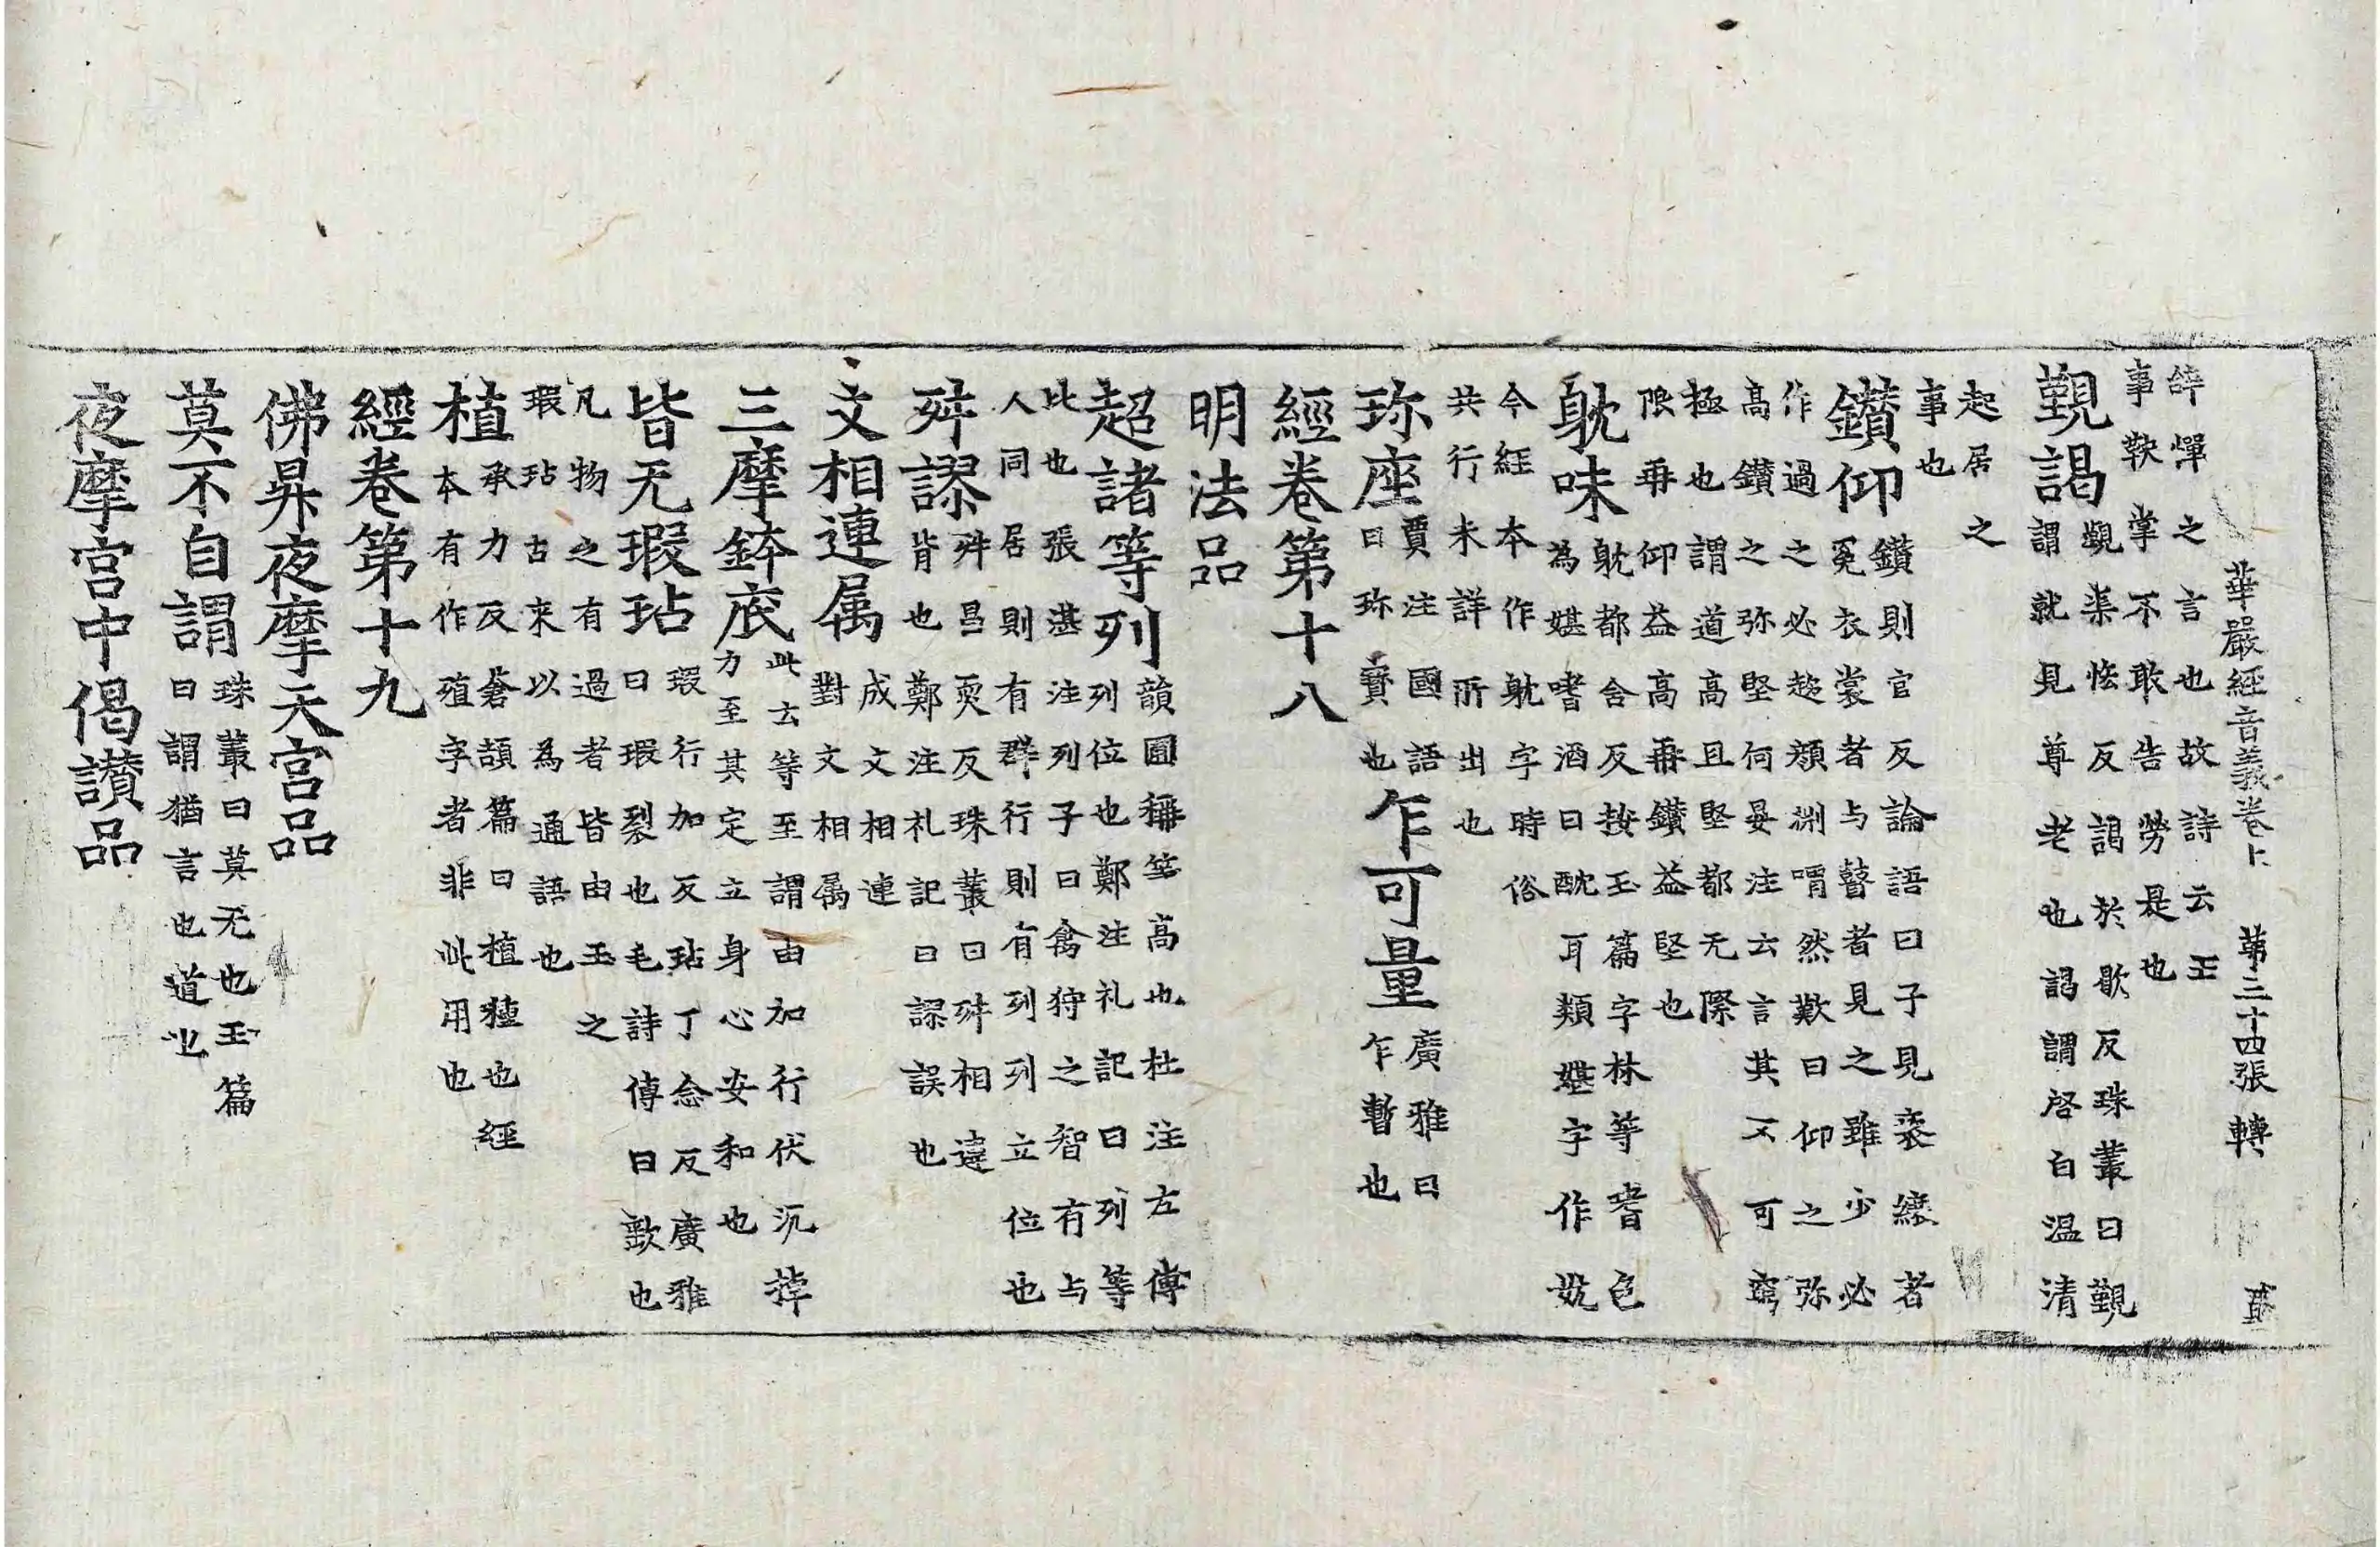 華嚴經音義卷上 第三十四張 轉
辝憚之言也故詩云王
事鞅掌不敢告勞是也
覲謁
覲渠恡反謁於歇反珠叢曰覲
謂就見尊老也謁謂啓白温清
起居之
事也
鑚仰
鑚則官反論語曰子見衮縗者
冕衣裳者与瞽者見之雖少必
作過之必趍顔渊喟然歎曰仰之弥
高鑚之弥堅何晏注云言其不可窮
極也謂道高且堅都无際
限再仰益高再鑚益堅也
躭味
躭都舍反按玉篇字林等耆色
為媅嗜酒曰酖耳類媅字作妉
今經本作躭字時俗
共行未詳所出也
珎座
賈注國語
曰珎寳也
乍可量
廣雅曰
乍暫也
經卷第十八
明法品
超諸等列
韻圃稱等高也杜注左傳
列位也鄭注礼記曰列等
比也張湛注列子曰禽狩之智有与
人同居則有群行則有列列立位也
舛謬
舛昌耎反珠叢曰舛相違
背也鄭注礼記曰謬誤也
文相連属
成文相連
對文相属
三摩鉢底
此云等至謂由加行伏沉掉
力至其定立身心安和也
皆无瑕玷
瑕行加反玷丁念反廣雅
曰瑕裂也毛詩傳曰缺也
凡物之有過者皆由玉之
瑕玷古来以為通語也
植
承力反蒼頡篇曰植種也經
本有作殖字者非此用也
經卷第十九
佛昇夜摩天宮品
莫不自謂
珠叢曰莫无也玉篇
曰謂猶言也道也
夜摩宮中偈讃品